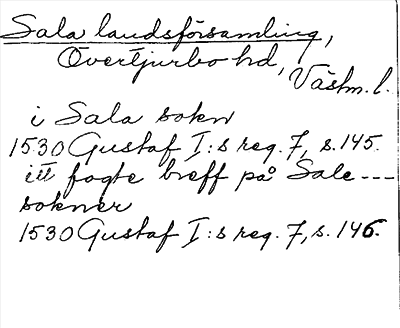 Sala landsförsamling,
Övertjurbo hd,
Västm. l.
i Sala sokn
1530 Gustaf I:s reg. 7, s. 145.
itt fogte breff på Sale ---
sokner
1530 Gustaf I:s reg. 7, s. 146.